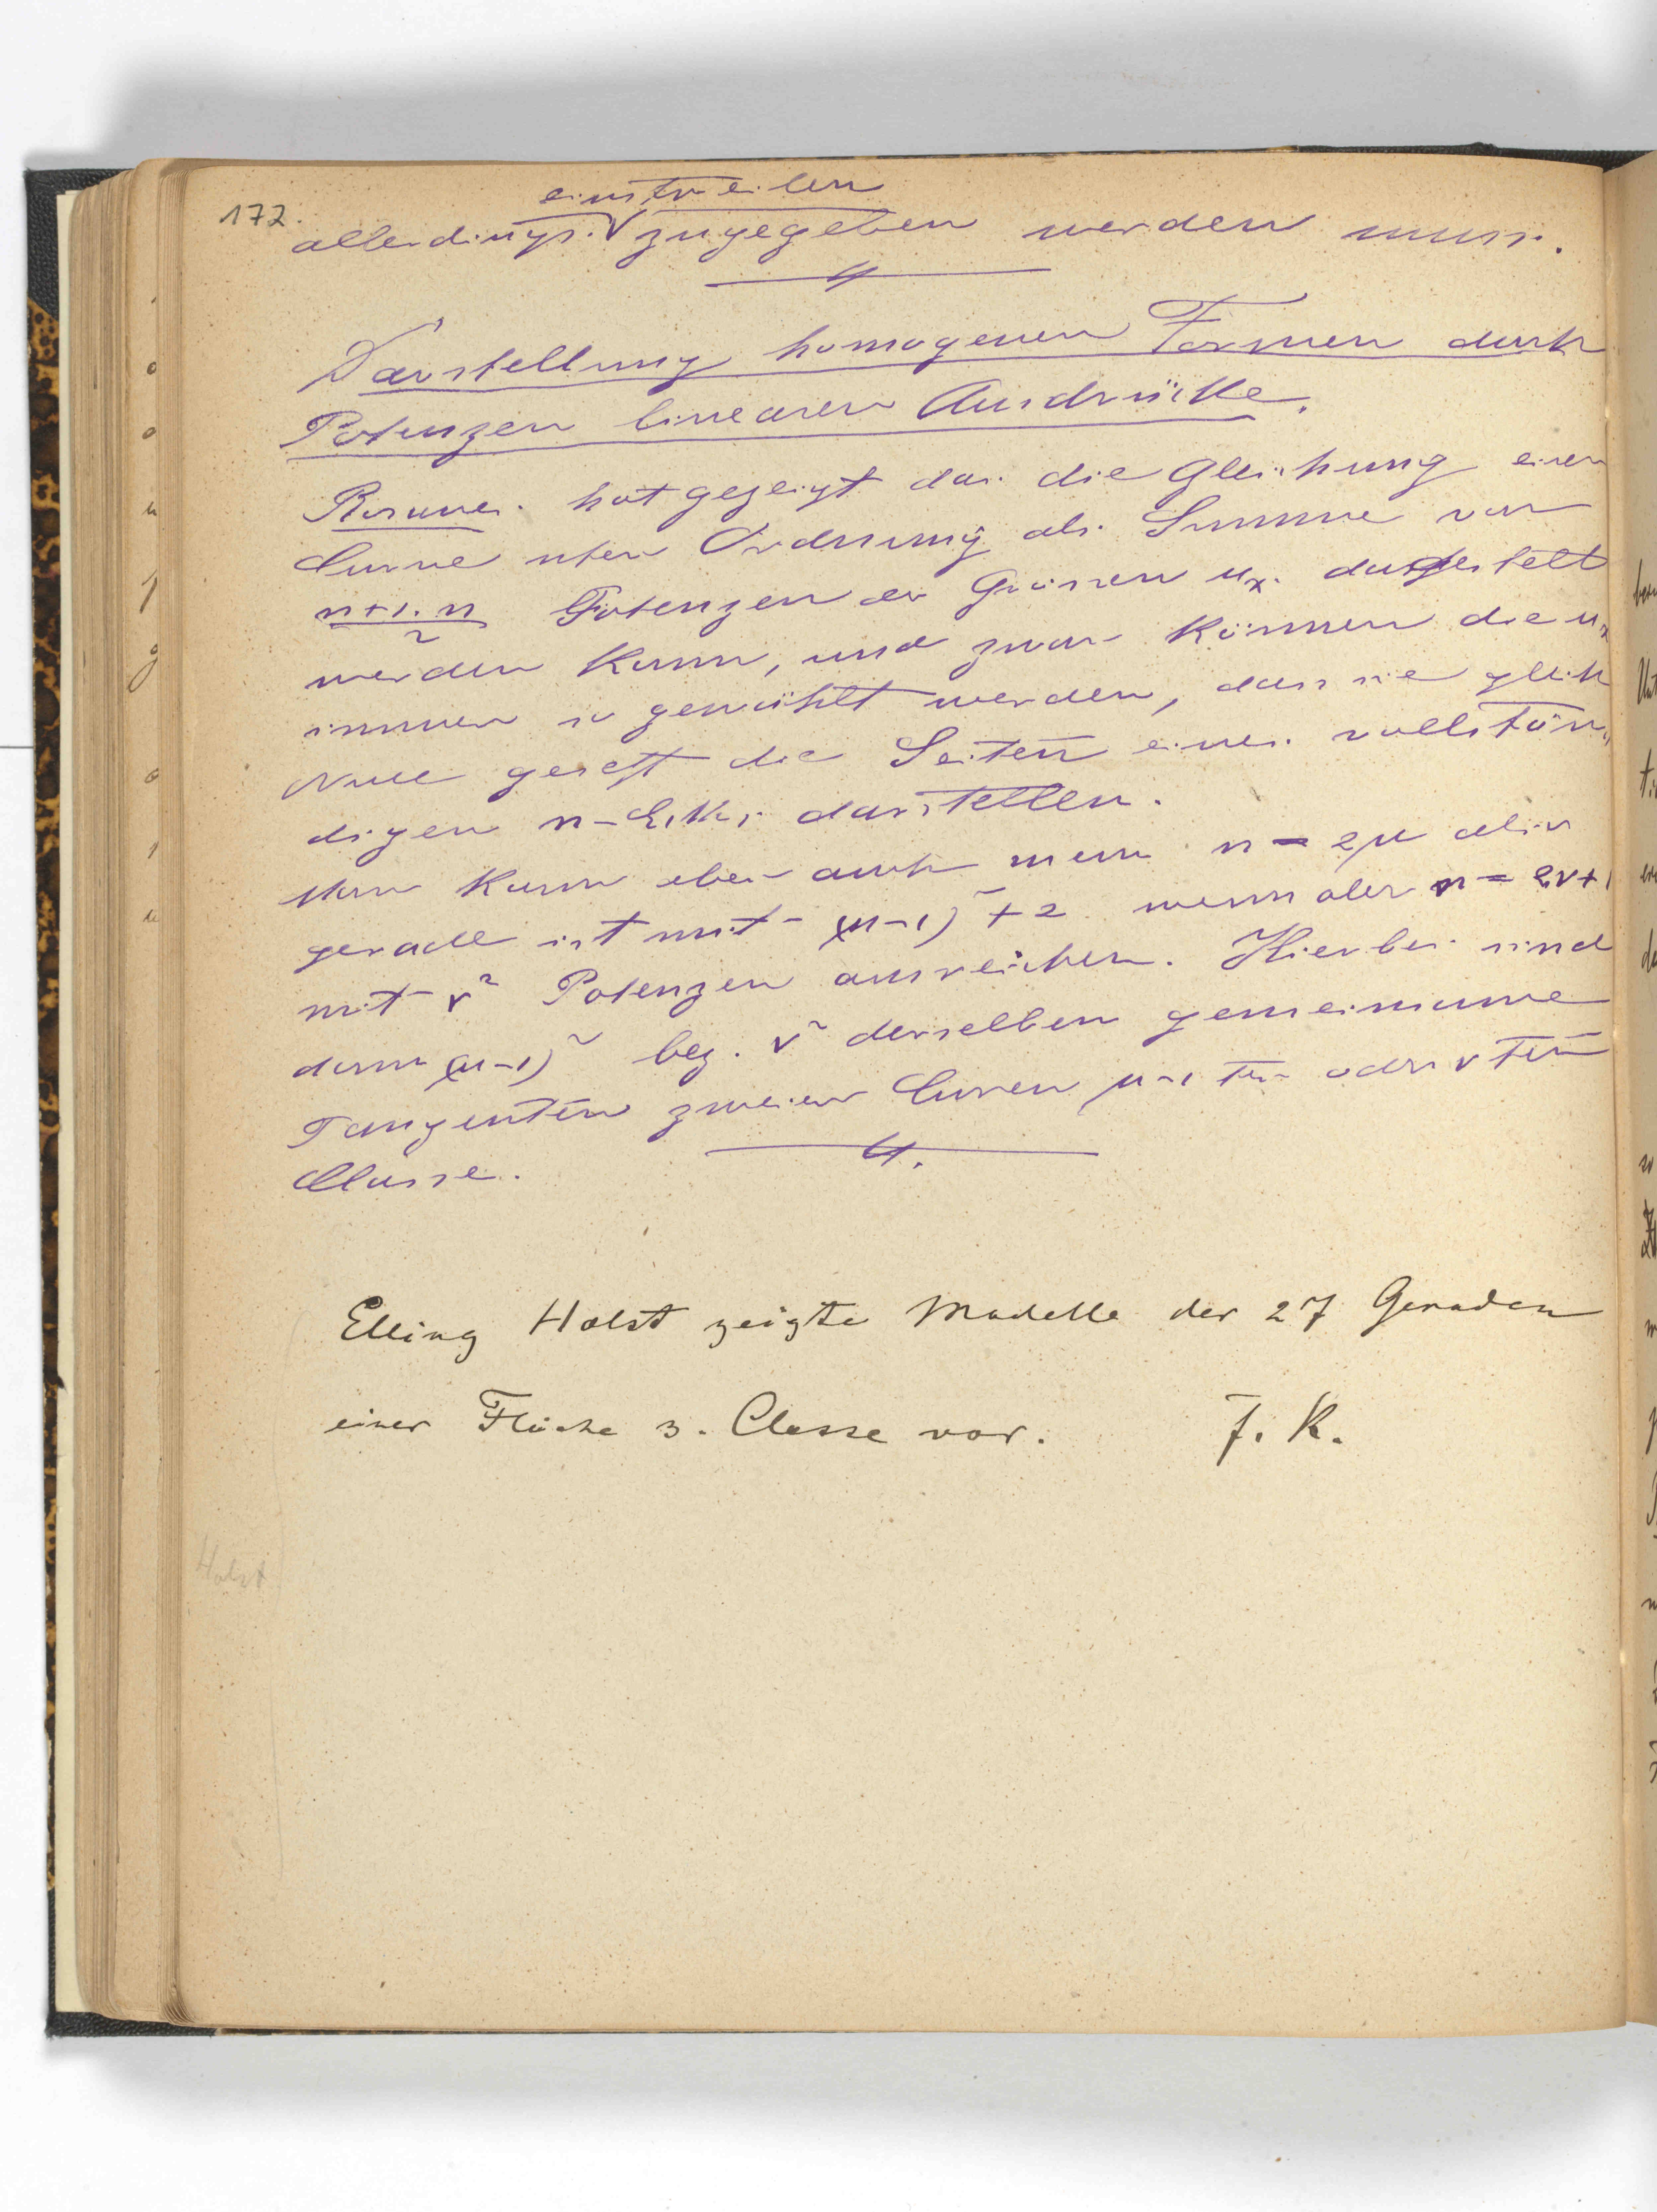 172.
einstweilen
allerdings zugegeben werden muss.
Darstellung homogener Formen durch
Potenzen linearer Ausdrücke.
hat gezeigt das die Gleichung einer
Curve nter Ordnung als Summe von
n+1.n/2 Potenzen der Grössen u_x dargestellt
werden kann, und zwar können die u_x
immer so gewählt werden, dass sie gleich
Null gesetzt die Seiten eines vollstän-
digen n-Ecks darstellen.
Man kann aber auch wenn n = 2μ also
gerade ist mit (μ-1)² + 2 wenn aber n = 2ν+1
mit ν² Potenzen ausreichen. Hierbei sind
dann (μ-1)² bez. ν² derselben gemeinsame
Tangenten zweier Curven μ-1 ter oder ν ter
Classe.
Elling Holst zeigte Modelle der 27 Geraden
einer Fläche 3. Classe vor. F. K.
Holst